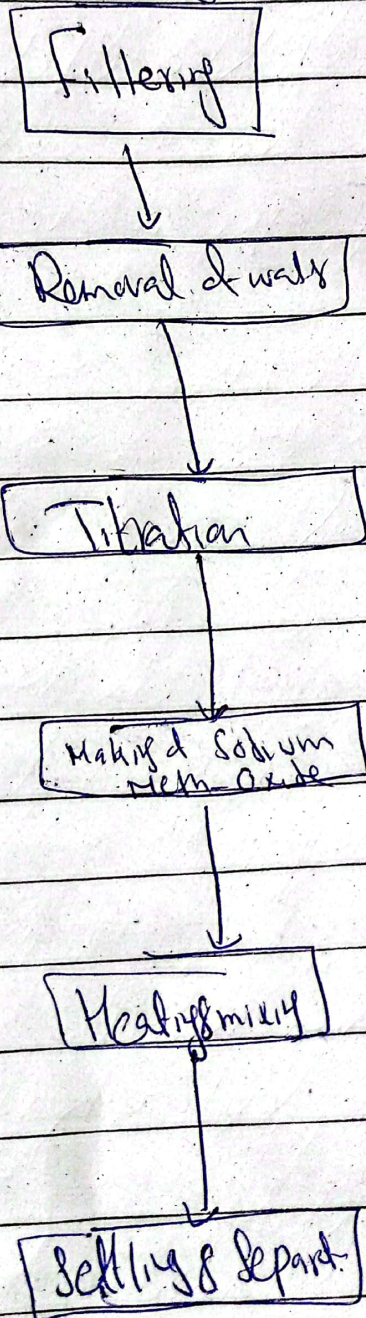 Filtering
Removal of water
Titration
Making of Sodium
Meth-Oxide
Heating & mixing
Settling & Separt.